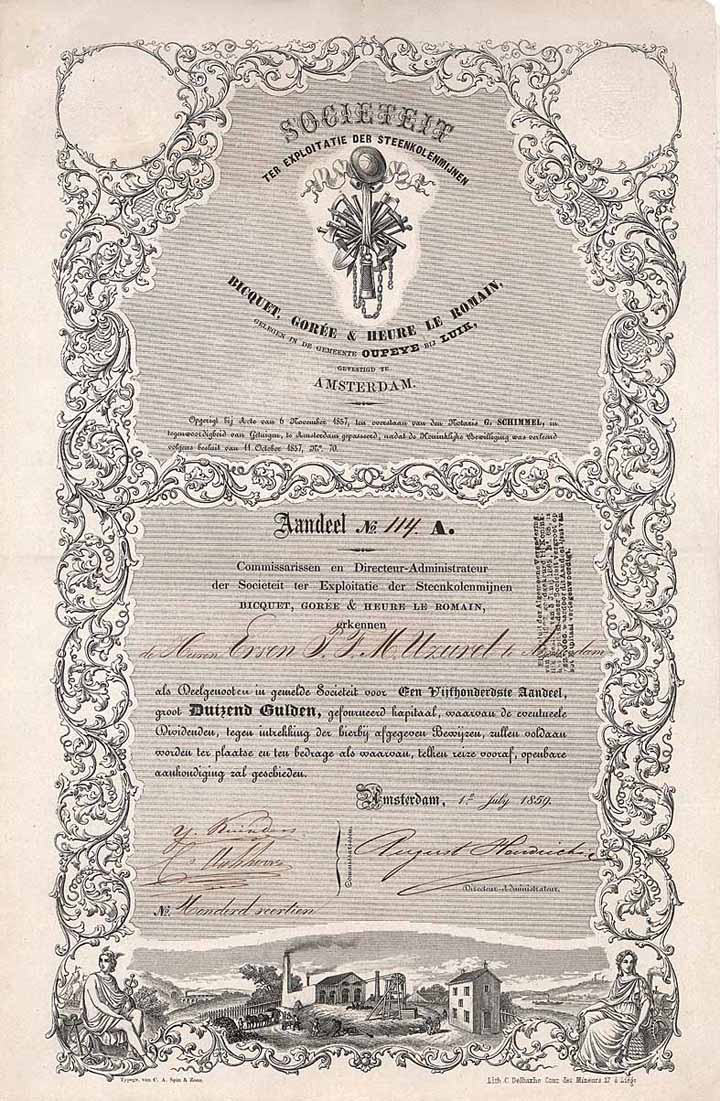 SOCIETEIT
TER EXPLOITATIE DER STEENKOLENMIJNEN
BICQUET, GORÉE & HEURE LE ROMAIN,
GELEGEN IN DE GEMEENTE OUPEYE BIJ LUIK,
GEVESTIGD TE
AMSTERDAM.
Opgerigt bij Acte van 6 November 1857, ten overstaan van den Notaris G. SCHIMMEL, in
tegenwoordigheid van Getuigen, te Amsterdam gepasseerd, nadat de Koninklijke Bewilliging was verleend
volgens besluit van 11 October 1857, No. 70.
Aandeel No. 114. A.
Commissarissen en Directeur-Administrateur
der Societeit ter Exploitatie der Steenkolenmijnen
BICQUET, GORÉE & HEURE LE ROMAIN,
erkennen
de Heeren Erven P. J. M. te Amsterdam
als Deelgenooten in gemelde Societeit voor Een Vijfhonderdste Aandeel,
groot Duizend Gulden, gefourneerd kapitaal, waarvan de eventueele
Dividenden, tegen intrekking der hierbij afgegeven Bewijzen, zullen voldaan
worden ter plaatse en ten bedrage als waarvan, telken reize vooraf, openbare
aankondiging zal geschieden.
Amsterdam, 1e July 1859.
Commissarissen.
August Hendrichs
Directeur-Administrateur.
No. Honderd veertien
Typogr. van C. A. Spin & Zoon.
Lith. C. Delhaxhe Couz des Mineurs 17 à Liége